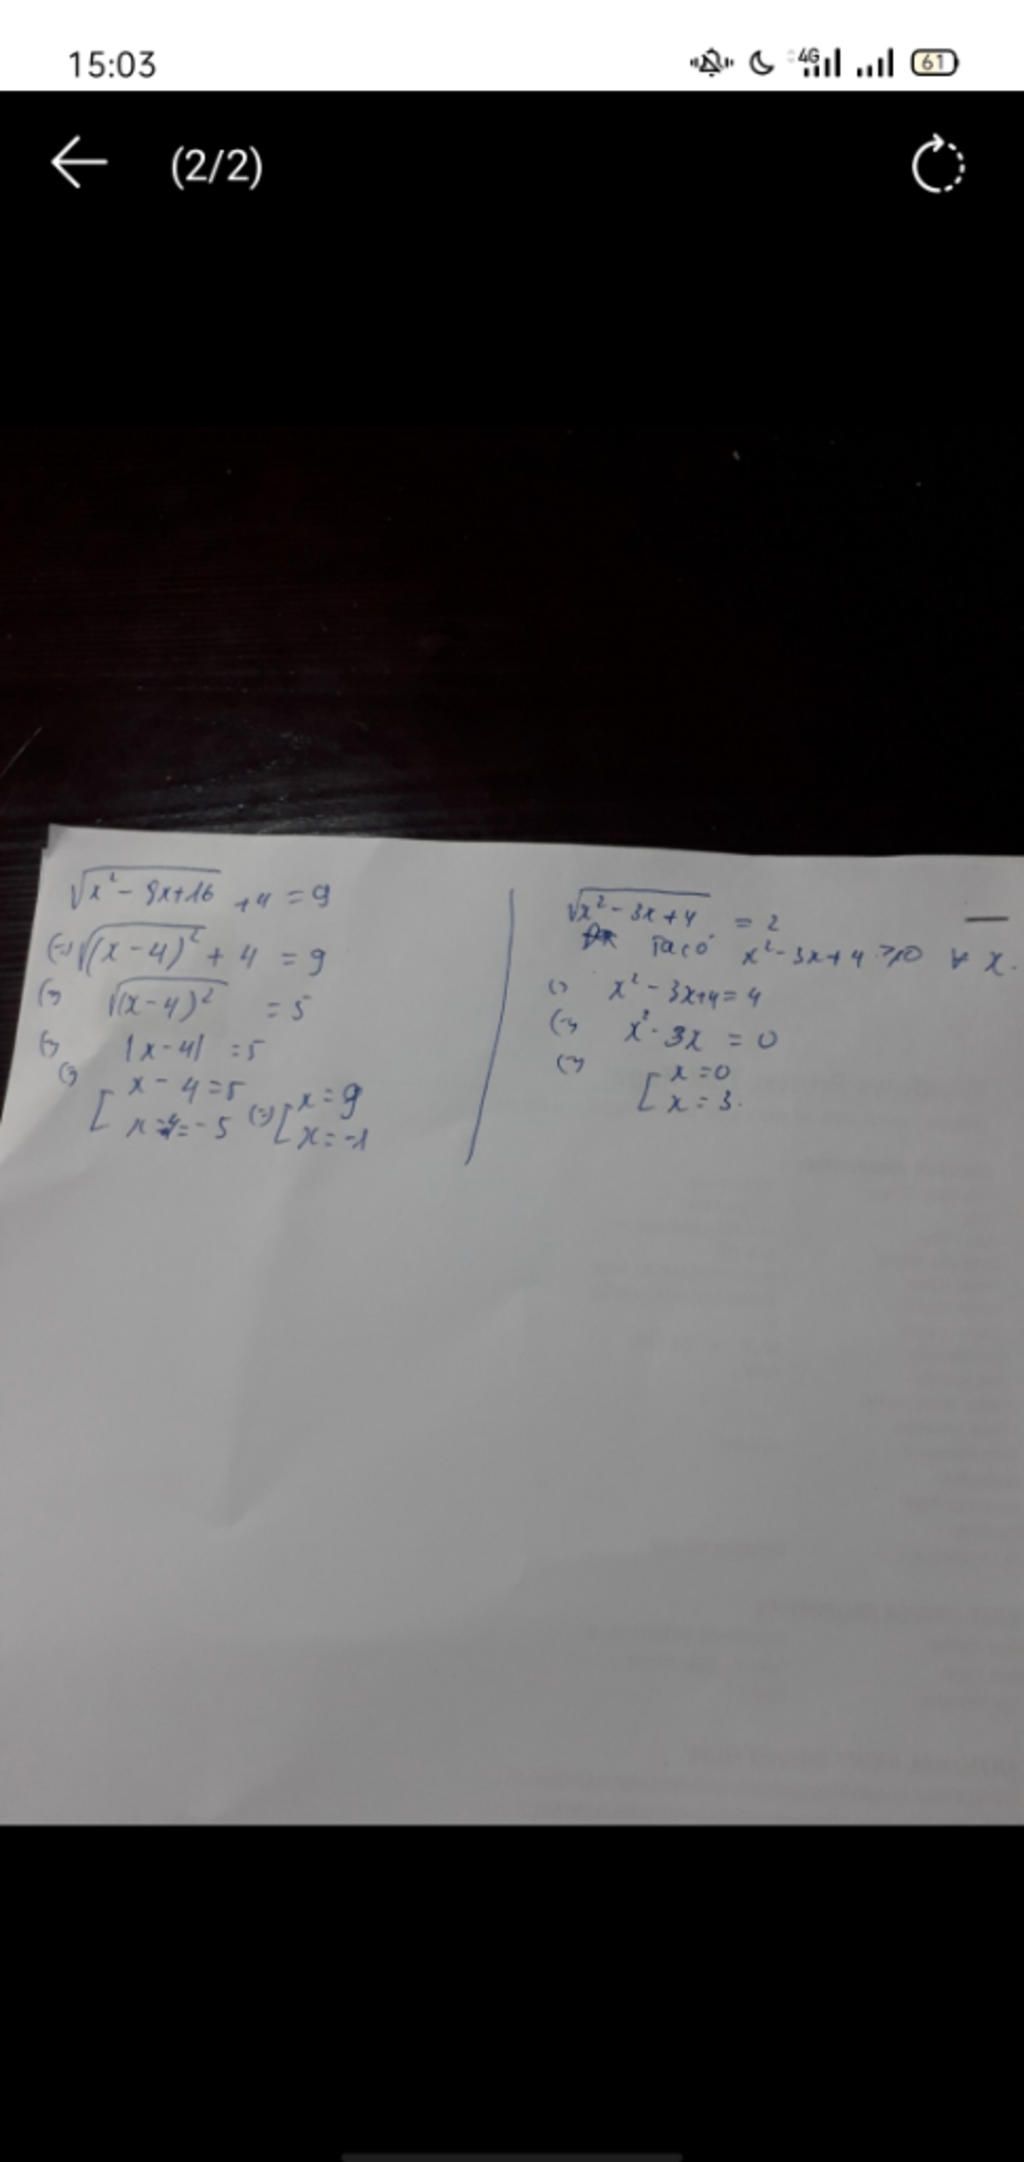 15:03
4G
61
(2/2)
√x² - 8x+16 +4 = 9
(=) √(x-4)² + 4 = 9
(=) √(x-4)² = 5
(=) |x-4| = 5
(=) [ x - 4 = 5
x-4 = -5 (=) [ x = 9
x = -1
√x² - 3x + 4 = 2
Ta có x² - 3x + 4 ≥ 0 ∀ x.
(=) x² - 3x+4 = 4
(=) x² - 3x = 0
(=) [ x = 0
x = 3.